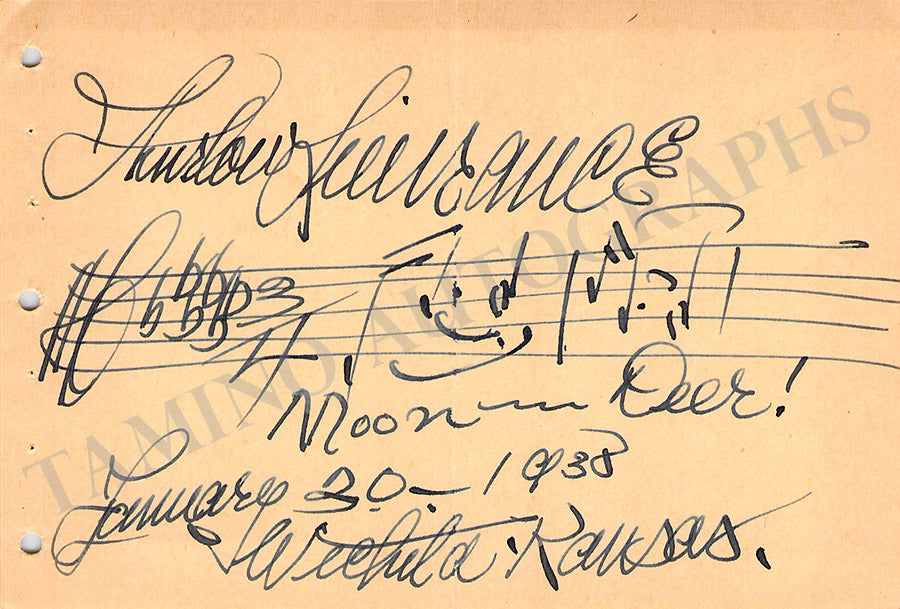 Thurlow Lieurance
3
4
Moon Deer!
January 20 - 1938
Wichita Kansas.
TAMINO AUTOGRAPHS